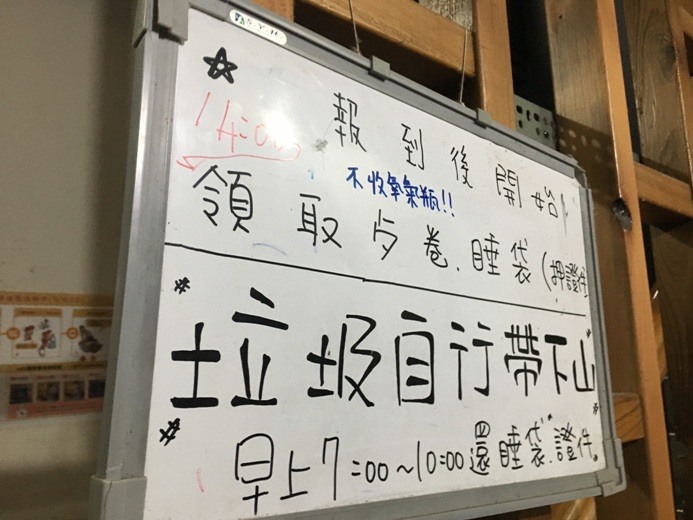 14:00 報到後開始
不收氧氣瓶!!
領取夕卷、睡袋(押證件
垃圾自行帶下山
早上7:00~10:00還睡袋、證件。